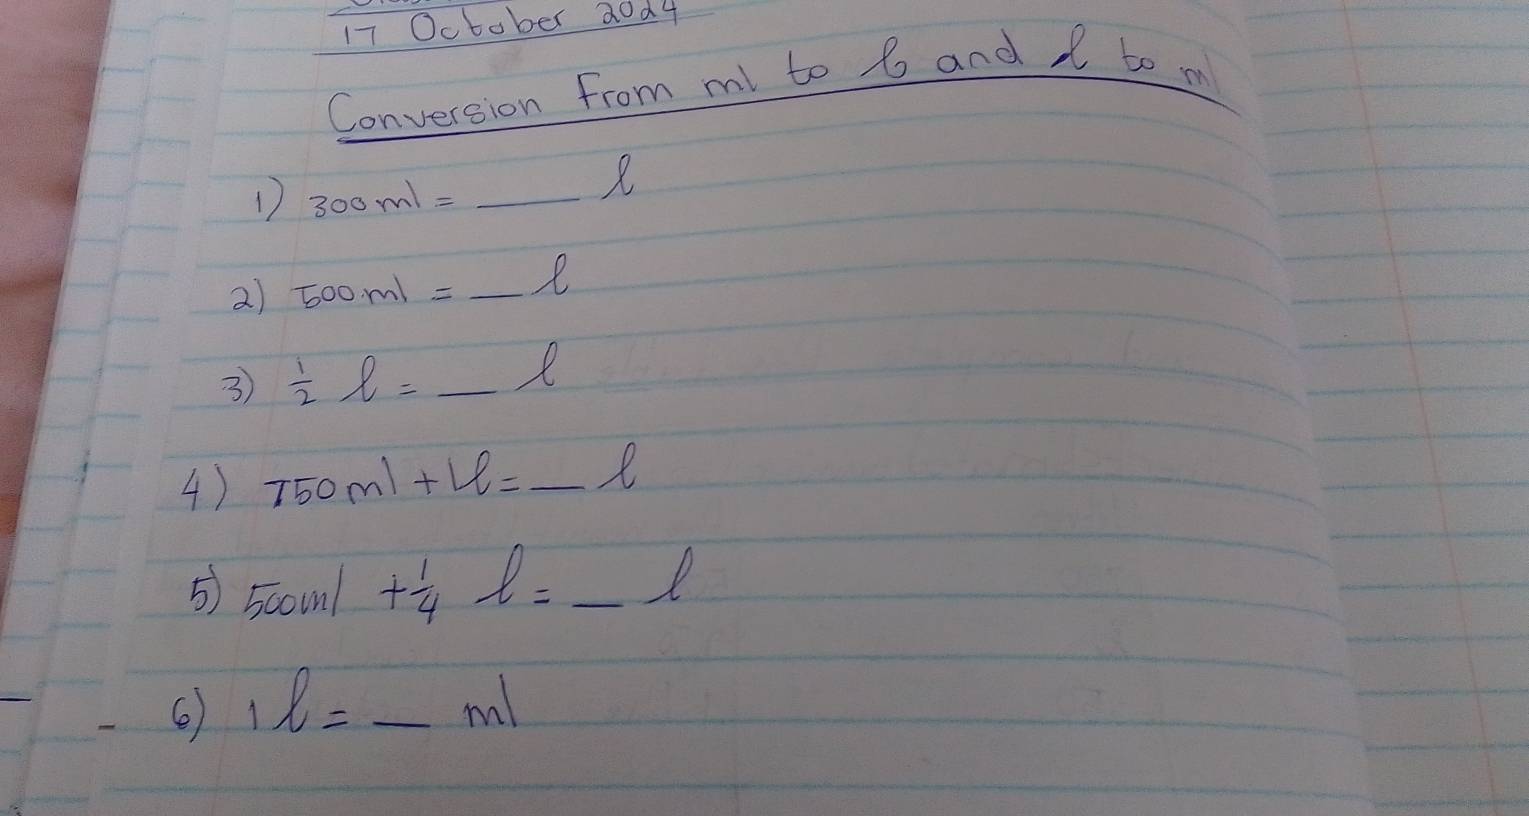 17 October 2024
Conversion From ml to l and l to ml
1) 300ml = ___ l
2) 500ml = __ l
3) 1/2 l = __ l
4) 750ml + 1l = __ l
5) 500ml + 1/4 l = __ l
6) 1 l = __ ml